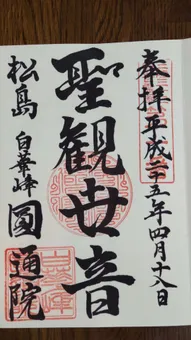 奉拝平成二十五年四月十八日
聖観世音
松島 白華峰 圓通院